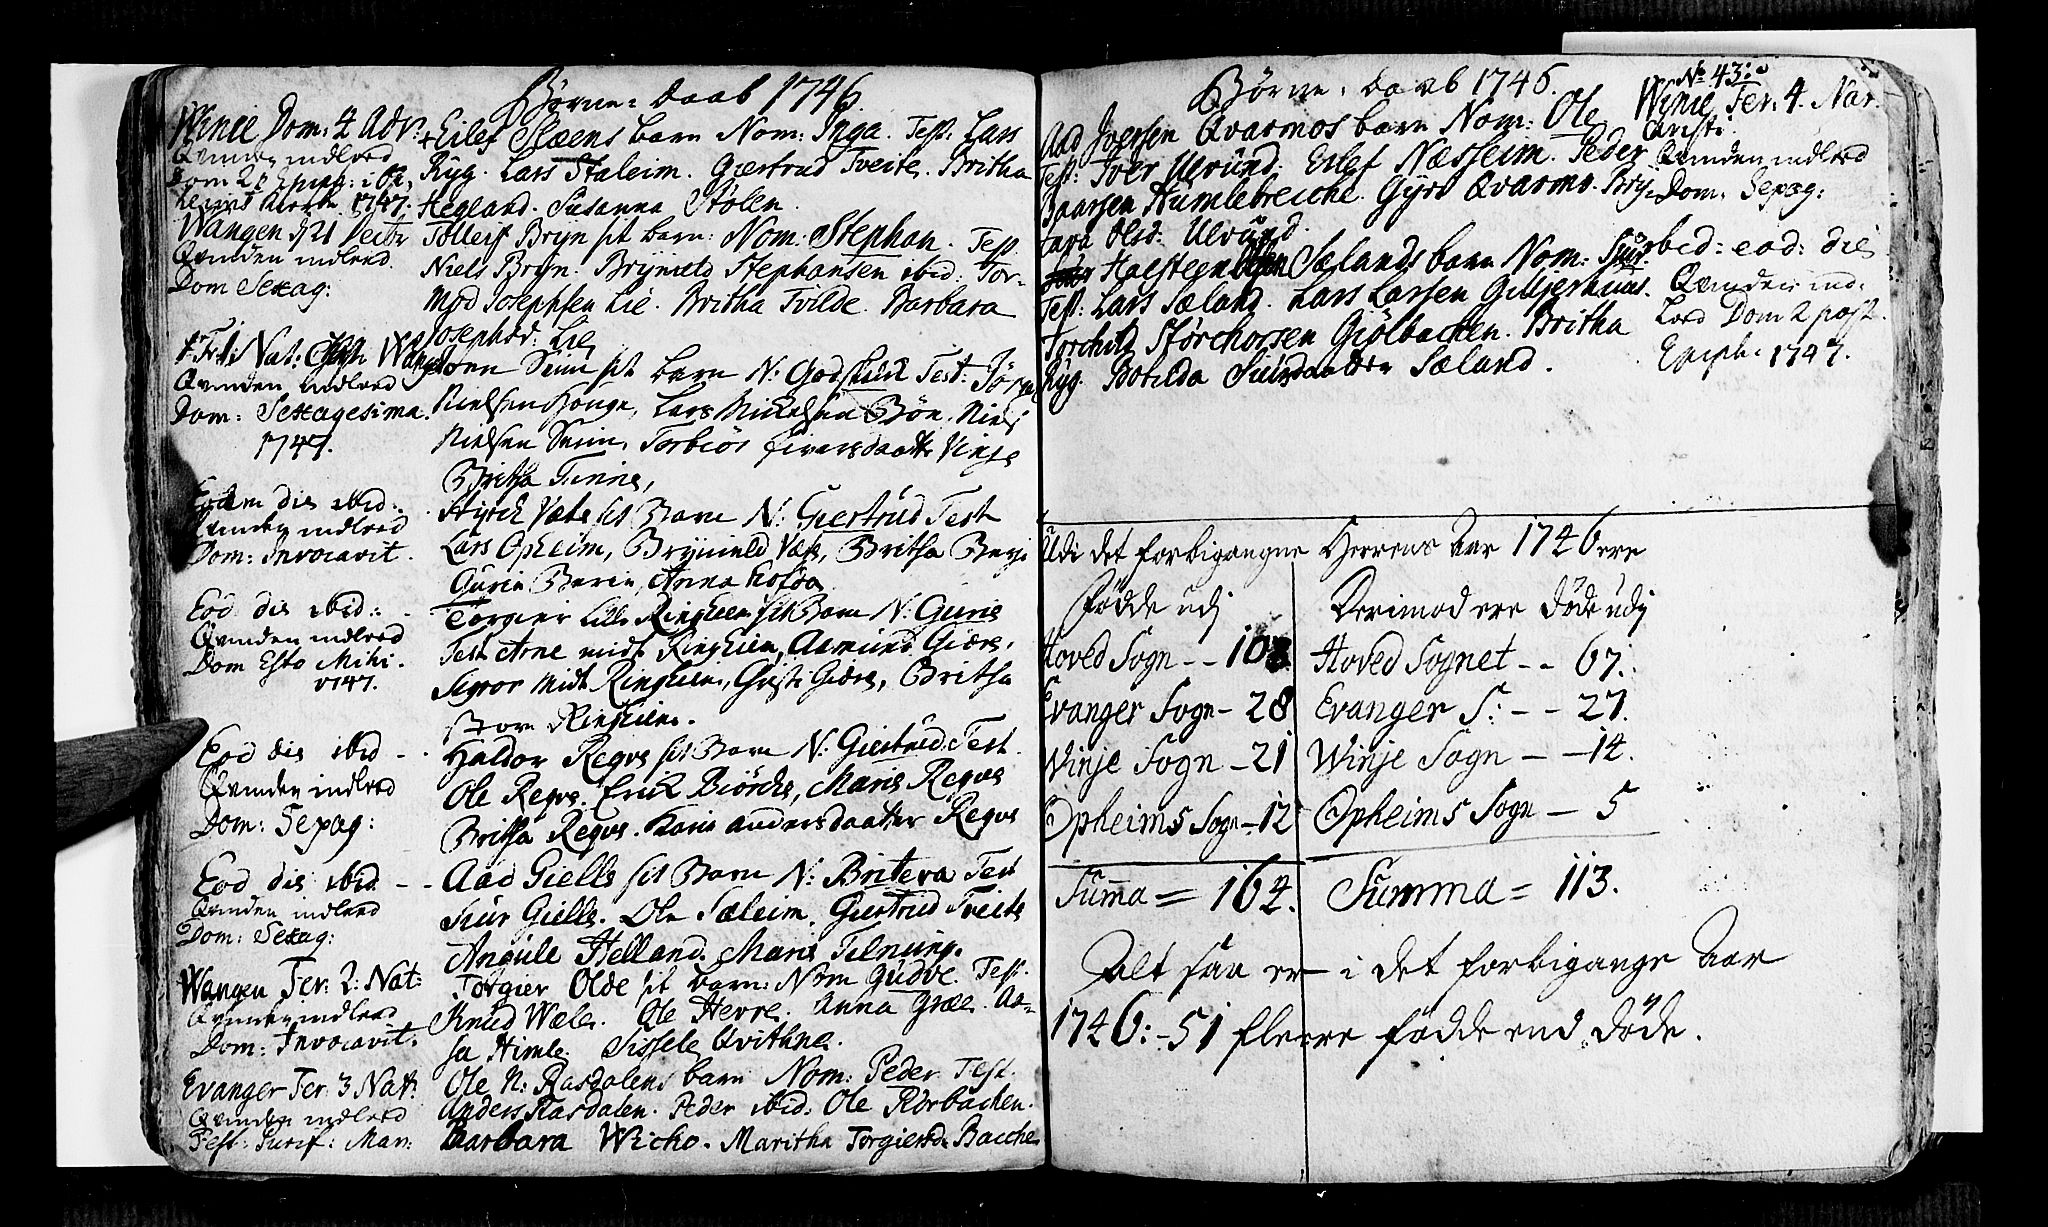 Børne: daab 1746.
Winie Dom: 4 Adv:
Qvinden indleed
Dom 2 p Epiph: i
1747.
+Eilef Slæens barn Nom: Inga. Test: Lars
Ryg. Lars Staleim. Giertrud Tveite. Britha
Hegland. Susanna Stølen.
Wangen d 21 Decbr
Qvinden indleed.
Dom Sexag:
Tolleif Bryn sit barn: Nom: Stephan. Test
Niels Bryn. Brynield Stephansen ibid: Tor-
mod Josephsen Lie. Britha Tvilde. Barbara
Josephsd: Lie
Fr: 1 Nat: Chri: Wangen
Qvinden indleed
Dom: Sexagesima.
1747.
Joen Seim sit barn N: Godskalk Test: Jørgen
Nielsen Houge, Lars Mickelsen Bøn, Niels
Nielsen Seim, Torbiør Siversdaatter Vinge
Britha Finne,
Eodem die ibid:
Qvinden indleed
Dom: Invocavit.
Styrck Væte sit Barn N: Giertrud Test
Lars Opheim, Brynield Væte, Britha Berge
Gurie Berie, Anna
Eod die ibid: -
Qvinden indleed
Dom Esto Mihi.
1747.
Torgier Lille Ringheim sit Barn N: Gurie
Test Arne midt Ringheim, Aamund Giære,
Sigvor midt Ringheim, Giære, Britha
Store Ringheim.
Eod die ibid -
Qvinden indleed
Dom: Sepag:
Haldor Reqve sit Barn N: Giertrud. Test
Ole Reqve. Erick Biørche, Marie Reqve
Britha Reqve. Karie andersdaatter Reqve
Eod die ibid - -
Qvinden indleed
Dom: Sexag:
Aad Gielle sit Barn N: Briteva Test
Siur Gielle. Ole Sæleim. Giertrud Tveite
Angule Helland. Marie Filnung.
Wangen Fer: 2: Nat:
Qvinden indleed
Dom: Invocavit.
Torgier Olde sit barn: Nom Gudve. Test.
Knud Wæle. Ole Hevre. Anna Græe. Aa-
sa Himle. Sissele Qvithne.
Evanger Fer. 3 Nat:
Qvinden indleed
Fest: Purif: Mar:
Ole N: Rasdalens barn Nom: Peder Test.
Anders Rasdalen. Peder ibid: Ole Rørbachen.
Barbara Wicko. Maritha Torgiersd. Bacche
Børne: daab 1746.
No 43:
Winie Fer: 4. Nat.
Christi
Qvinden indleed
Dom: Sepag:
Aad Joersen Qvarmos barn Nom: Ole
Test: Iver Ulvund. Eilef Næsseim. Peder
Baarsen Humlebreche. Gyro Qvarmo. Bry-
tava Olsd: Ulvund.
ibid: eod: die
Qvinden ind-
leed Dom 2 post
Epiph: 1747.
Halsteen Olsen Sælands barn Nom: Siur
Test: Lars Sæland. Lars Larsen Gilljerhuus.
Torchild Størchorsen Giølbachen. Britha
Ryg. Botilda Siursdaatter Sæland.
Udi det forbigangne Herrens Aar 1746 ere
Fødde udj
Hoved Sogn - - 103
Evanger Sogn - 28
Winje Sogn - 21
Opheims Sogn - 12
Summa = 164.
Derimod ere døde udj
Hoved Sognet - - 67.
Evanger S: - - 27.
Winje Sogn - - 14.
Opheims Sogn - 5
Summa = 113.
Alt saa er i det forbigangne Aar
1746: - 51 fleere fødde end døde.